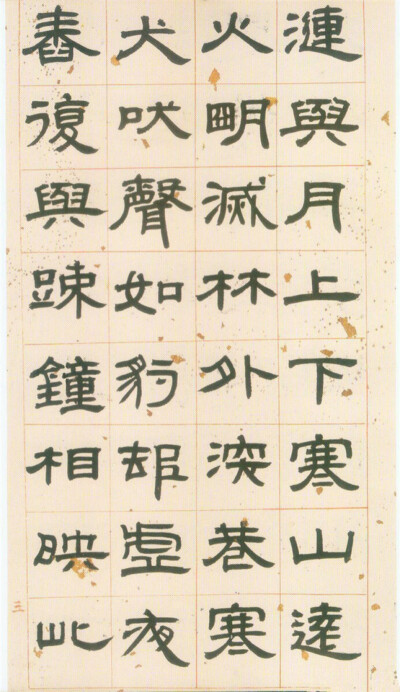 漣與月上下寒山遠
火朙滅林外深巷寒
犬吠聲如豹邨虛夜
舂復與踈鐘相映此
三